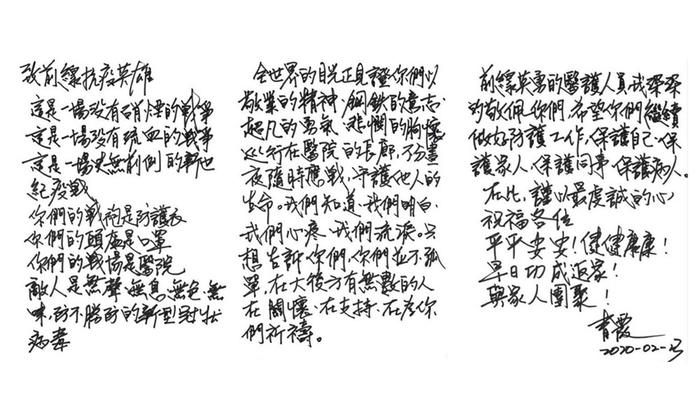 致前線抗疫英雄
這是一場沒有硝煙的戰爭
這是一場沒有流血的戰事
這是一場史無前例的新世
紀疫戰
你們的戰袍是防護衣
你們的頭盔是口罩
你們的戰場是醫院
敵人是無聲、無息、無色、無
味、防不勝防的新型冠狀
病毒
全世界的目光正見證你們以
敬業的精神、鋼鐵的意志、
超凡的勇氣、悲憫的胸懷
逆行在醫院的長廊,不分晝
夜隨時應戰,守護他人的
生命。我們知道、我們明白、
我們心疼、我們流淚。只
想告訴你們,你們並不孤
單,在大後方有無數的人
在關懷、在支持、在為你
們祈禱。
前線英勇的醫護人員,我深深
的敬佩你們,希望你們繼續
做好防護工作,保護自己、保
護家人、保護同事、保護病人。
在此,謹以最虔誠的心
祝福各位
平平安安!健健康康!
早日功成返家!
與家人團聚!
青霞
2020-02-